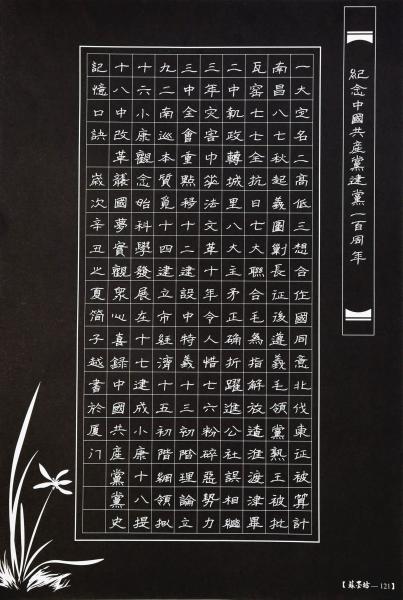 紀念中國共產黨建黨一百周年
一大定名二高低三想合作國同意北伐東征被算計
南昌八七秋起義圍剿長征後遵義毛領黨熟王被批
瓦窑七七全抗日七大聯合毛為指解放造淮渡津畢
二中執政轉城里八大主矛正確折躍進公社誤相繼
三年灾害中法文革十年令人惜七六粉碎惡勢力
三中全會重點移十二建設中特義十三初階理論立
九二南巡本質覓十四建立市經濟十五初階綱領擬
十六小康觀念始科學發展在十七建成小康十八提
十八中改革國夢實觀眾心喜錄中國共產黨黨史
記憶口訣 歲次辛丑之夏簡子越書於厦门
【蘇墨坊—121】